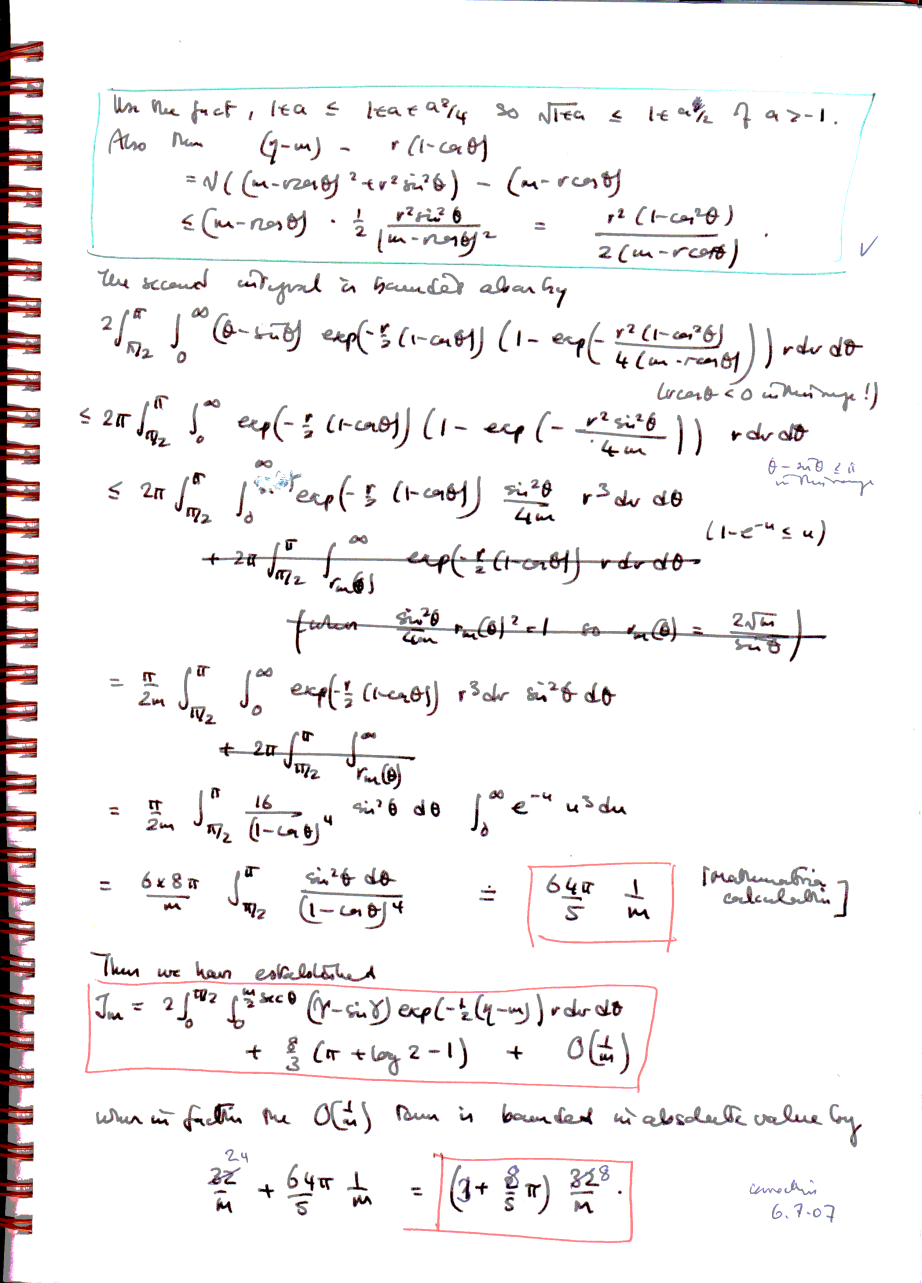 Use the fact, 1+a ≤ 1+a+a²/4 so √1+a ≤ 1+a/2 if a > -1.
Also then (η-m) - r(1-cosθ)
= √((m-rcosθ)²+r²sin²θ) - (m-rcosθ)
≤ (m-rcosθ) · 1/2 r²sin²θ/(m-rcosθ)² = r²(1-cos²θ)/2(m-rcosθ) . ✓
The second integral is bounded above by
2∫_{π/2}^{π} ∫_0^∞ (θ-sinθ) exp(-r/2 (1-cosθ)) (1 - exp(- r²(1-cos²θ)/4(m-rcosθ))) r dr dθ
(rcosθ < 0 in this range!)
≤ 2π ∫_{π/2}^{π} ∫_0^∞ exp(-r/2 (1-cosθ)) (1 - exp(- r²sin²θ/4m)) r dr dθ
θ - sinθ ≤ π
in this range
≤ 2π ∫_{π/2}^{π} ∫_0^∞ exp(-r/2 (1-cosθ)) sin²θ/4m r³ dr dθ
(1-e^{-u} ≤ u)
+ 2π ∫_{π/2}^{π} ∫_{r_m(θ)}^∞ exp(-r/2 (1-cosθ)) r dr dθ
(when sin²θ/4m r_m(θ)² = 1 so r_m(θ) = 2√m/sinθ)
= π/2m ∫_{π/2}^{π} ∫_0^∞ exp(-r/2 (1-cosθ)) r³ dr sin²θ dθ
+ 2π ∫_{π/2}^{π} ∫_{r_m(θ)}^∞
= π/2m ∫_{π/2}^{π} 16/(1-cosθ)⁴ sin²θ dθ ∫_0^∞ e^{-u} u³ du
= 6×8π/m ∫_{π/2}^{π} sin²θ dθ/(1-cosθ)⁴ ≐ 64π/5 1/m [Mathematica calculation]
Then we have established
J_m = 2∫_0^{π/2} ∫_0^{m/2 secθ} (γ-sinγ) exp(-1/2(η-m)) r dr dθ
+ 8/3 (π + log 2 - 1) + O(1/m)
when in fact the O(1/m) term is bounded in absolute value by
24
32/m + 64π/5 1/m = (3 + 8/5 π) 328/m .
correction
6.7.07